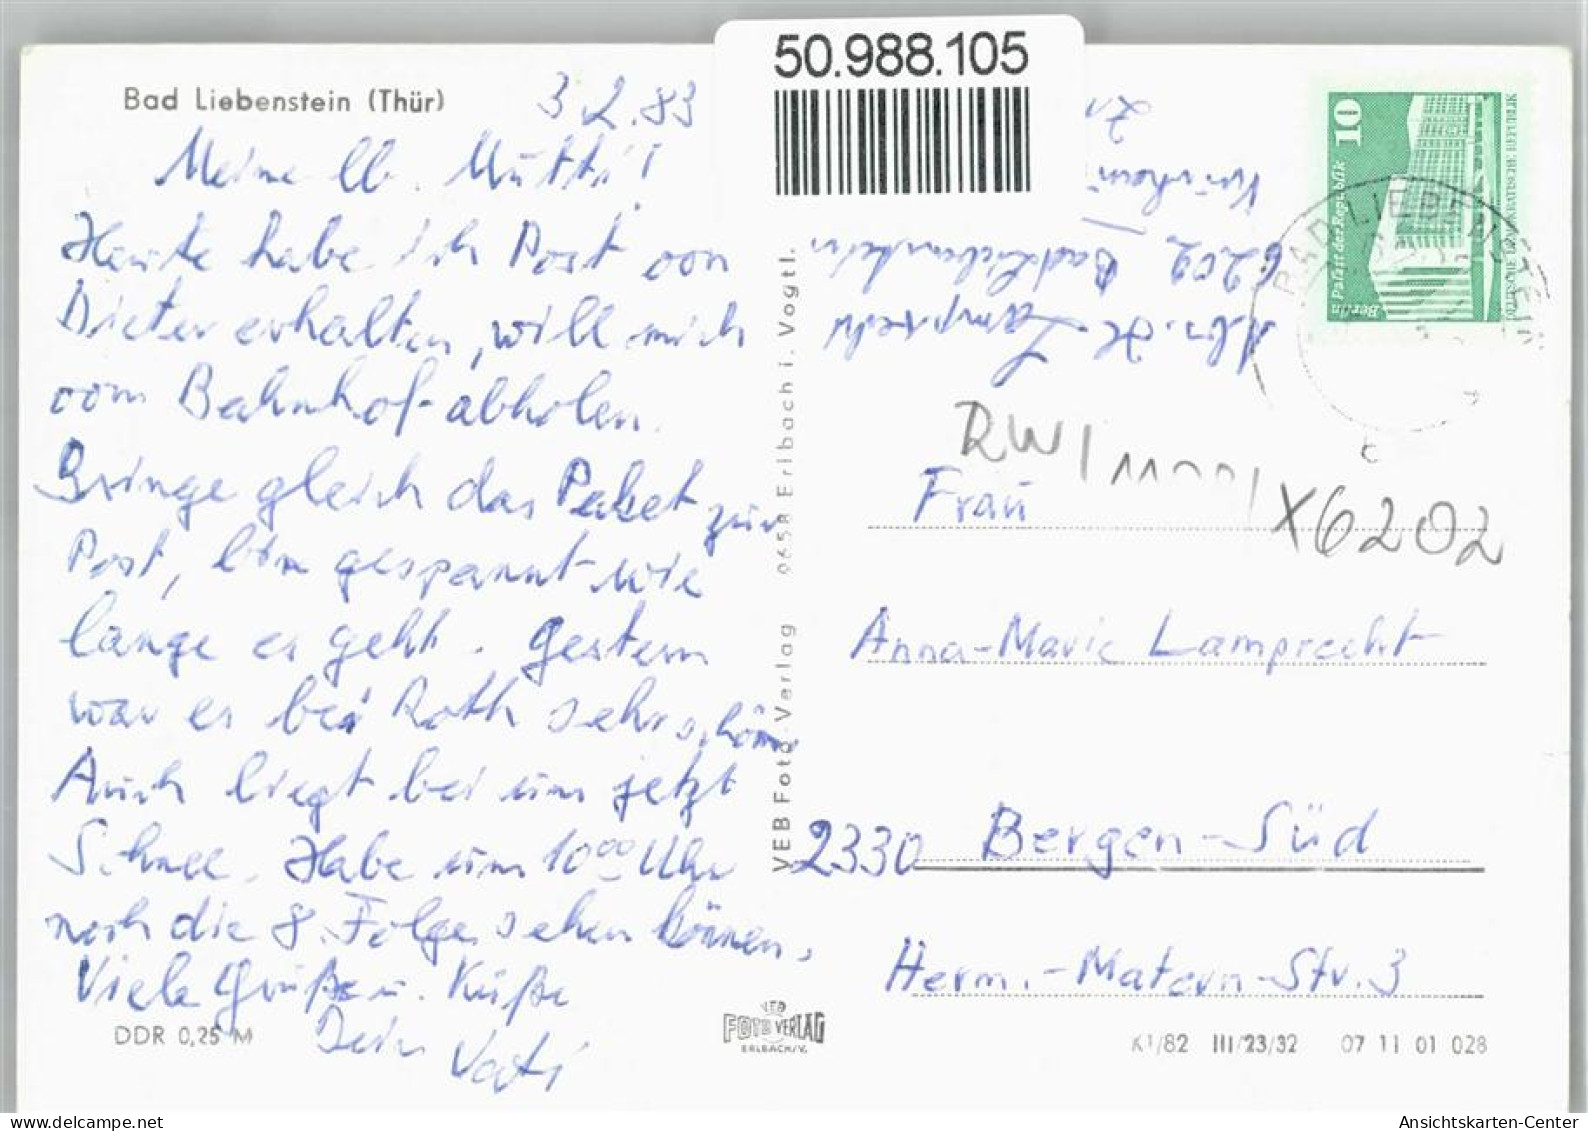 50.988.105
Bad Liebenstein (Thür)
3.2.83
Meine lb. Mutti!
Heute habe ich Post von
Dieter erhalten, will mich
vom Bahnhof abholen.
Bringe gleich das Paket zur
Post, bin gespannt wie
lange es geht. Gestern
war es bei Roth sehr schön
Auch liegt bei uns jetzt
Schnee. Habe um 10 00 Uhr
noch die 8. Folge sehen können.
Viele Grüße u. Küße
Dein Vati
DDR 0,25 M
VEB Foto-Verlag 0658 Erlbach i. Vogtl.
VEB
FOTO VERLAG
ERLBACH/V.
Abs. H. Lamprecht
6202 Bad Liebenstein
10
Berlin Palast der Republik
DEUTSCHE DEMOKRATISCHE REPUBLIK
BAD LIEBENSTEIN
RW
X6202
Frau
Anna-Marie Lamprecht
2330 Bergen-Süd
Herm.-Matern-Str. 3
K1/82 III/23/32 07 11 01 028
Ansichtskarten-Center